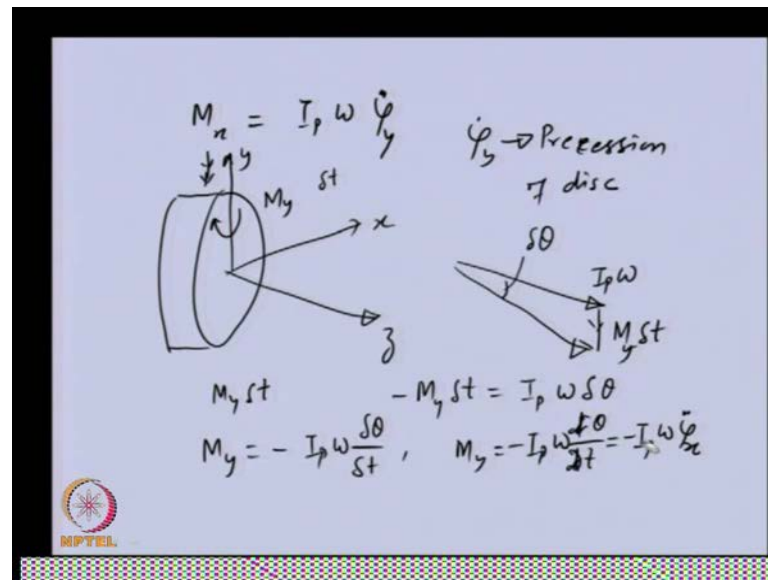 M_x = I_p ω φ̇_y
φ̇_y → Precession
of disc
y
M_y
δt
x
z
δθ
I_p ω
M_y δt
M_y δt
- M_y δt = I_p ω δθ
M_y = - I_p ω δθ/δt , M_y = - I_p ω dθ/dt = - I_p ω φ̇_x
NPTEL